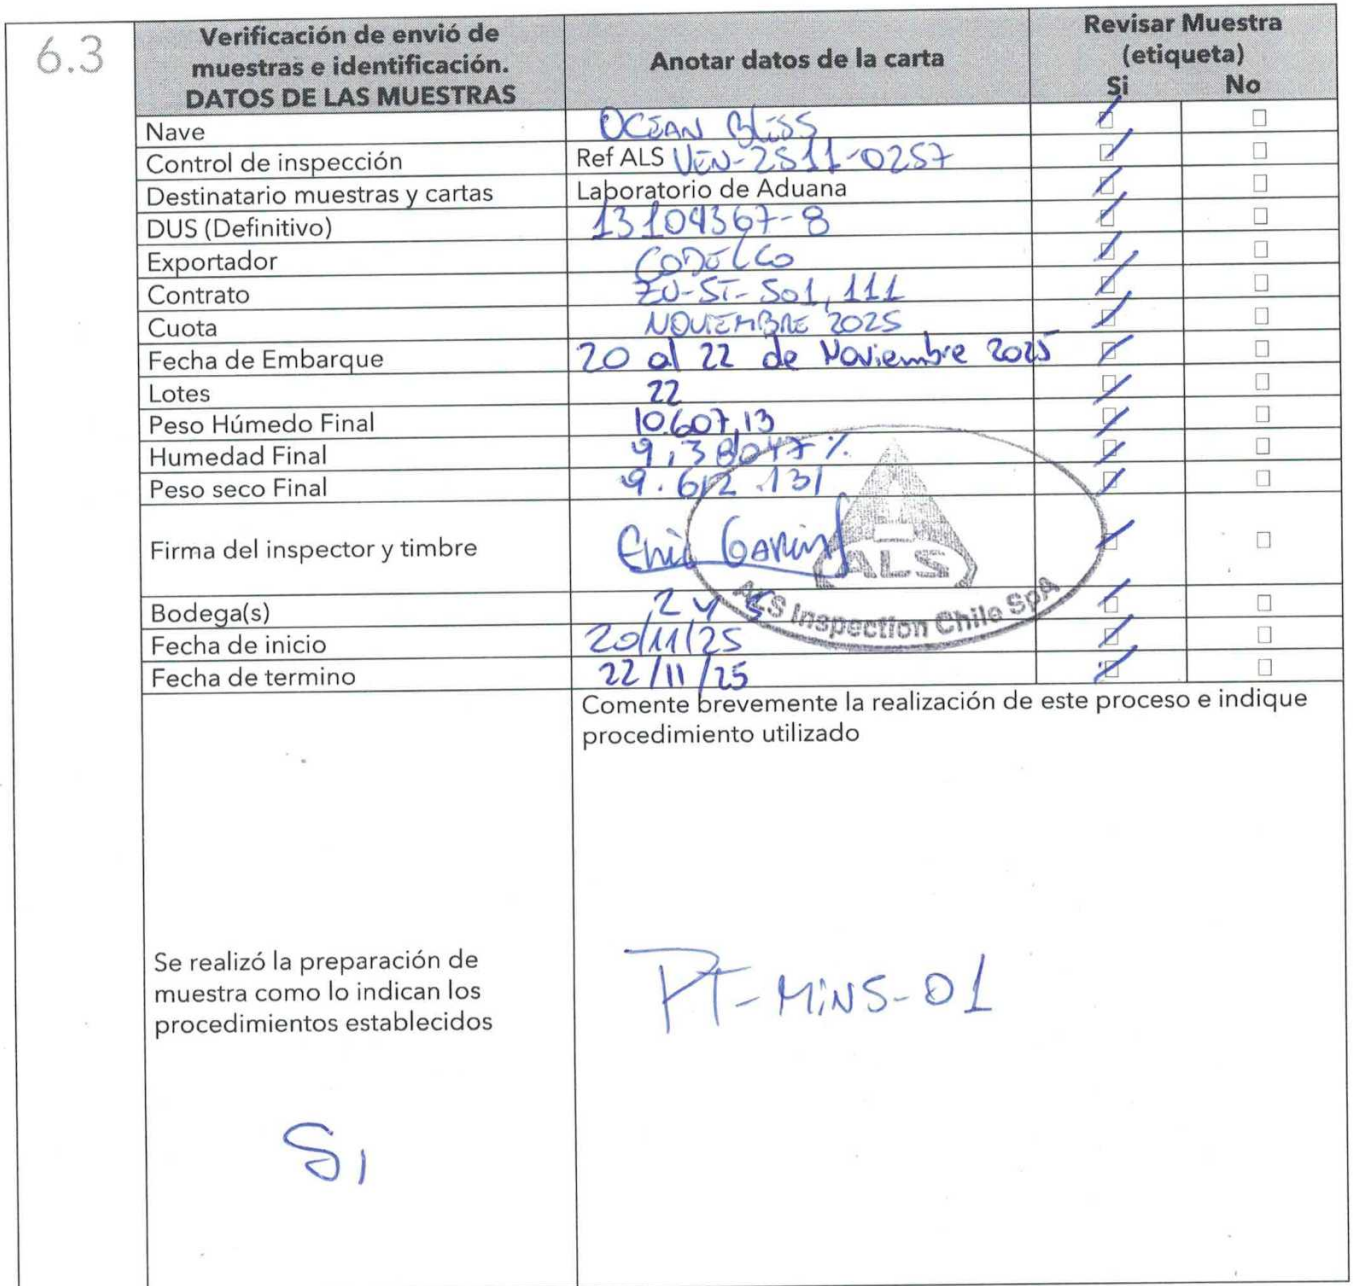 6.3
Verificación de envió de muestras e identificación. DATOS DE LAS MUESTRAS
Anotar datos de la carta
Revisar Muestra (etiqueta)
Si No
Nave OCEAN BLiSS
Control de inspección Ref ALS VEN-2511-0257
Destinatario muestras y cartas Laboratorio de Aduana
DUS (Definitivo) 13104367-8
Exportador CODELCO
Contrato ZU-ST-S01, 111
Cuota NOVIEMBRE 2025
Fecha de Embarque 20 al 22 de Noviembre 2025
Lotes 22
Peso Húmedo Final 10.607,13
Humedad Final 9,38047%
Peso seco Final 9.612.131
Firma del inspector y timbre
ALS
ALS Inspection Chile SpA
Bodega(s) 2 y 5
Fecha de inicio 20/11/25
Fecha de termino 22/11/25
Comente brevemente la realización de este proceso e indique
procedimiento utilizado
Se realizó la preparación de
muestra como lo indican los
procedimientos establecidos
PT-MiNS-01
Si